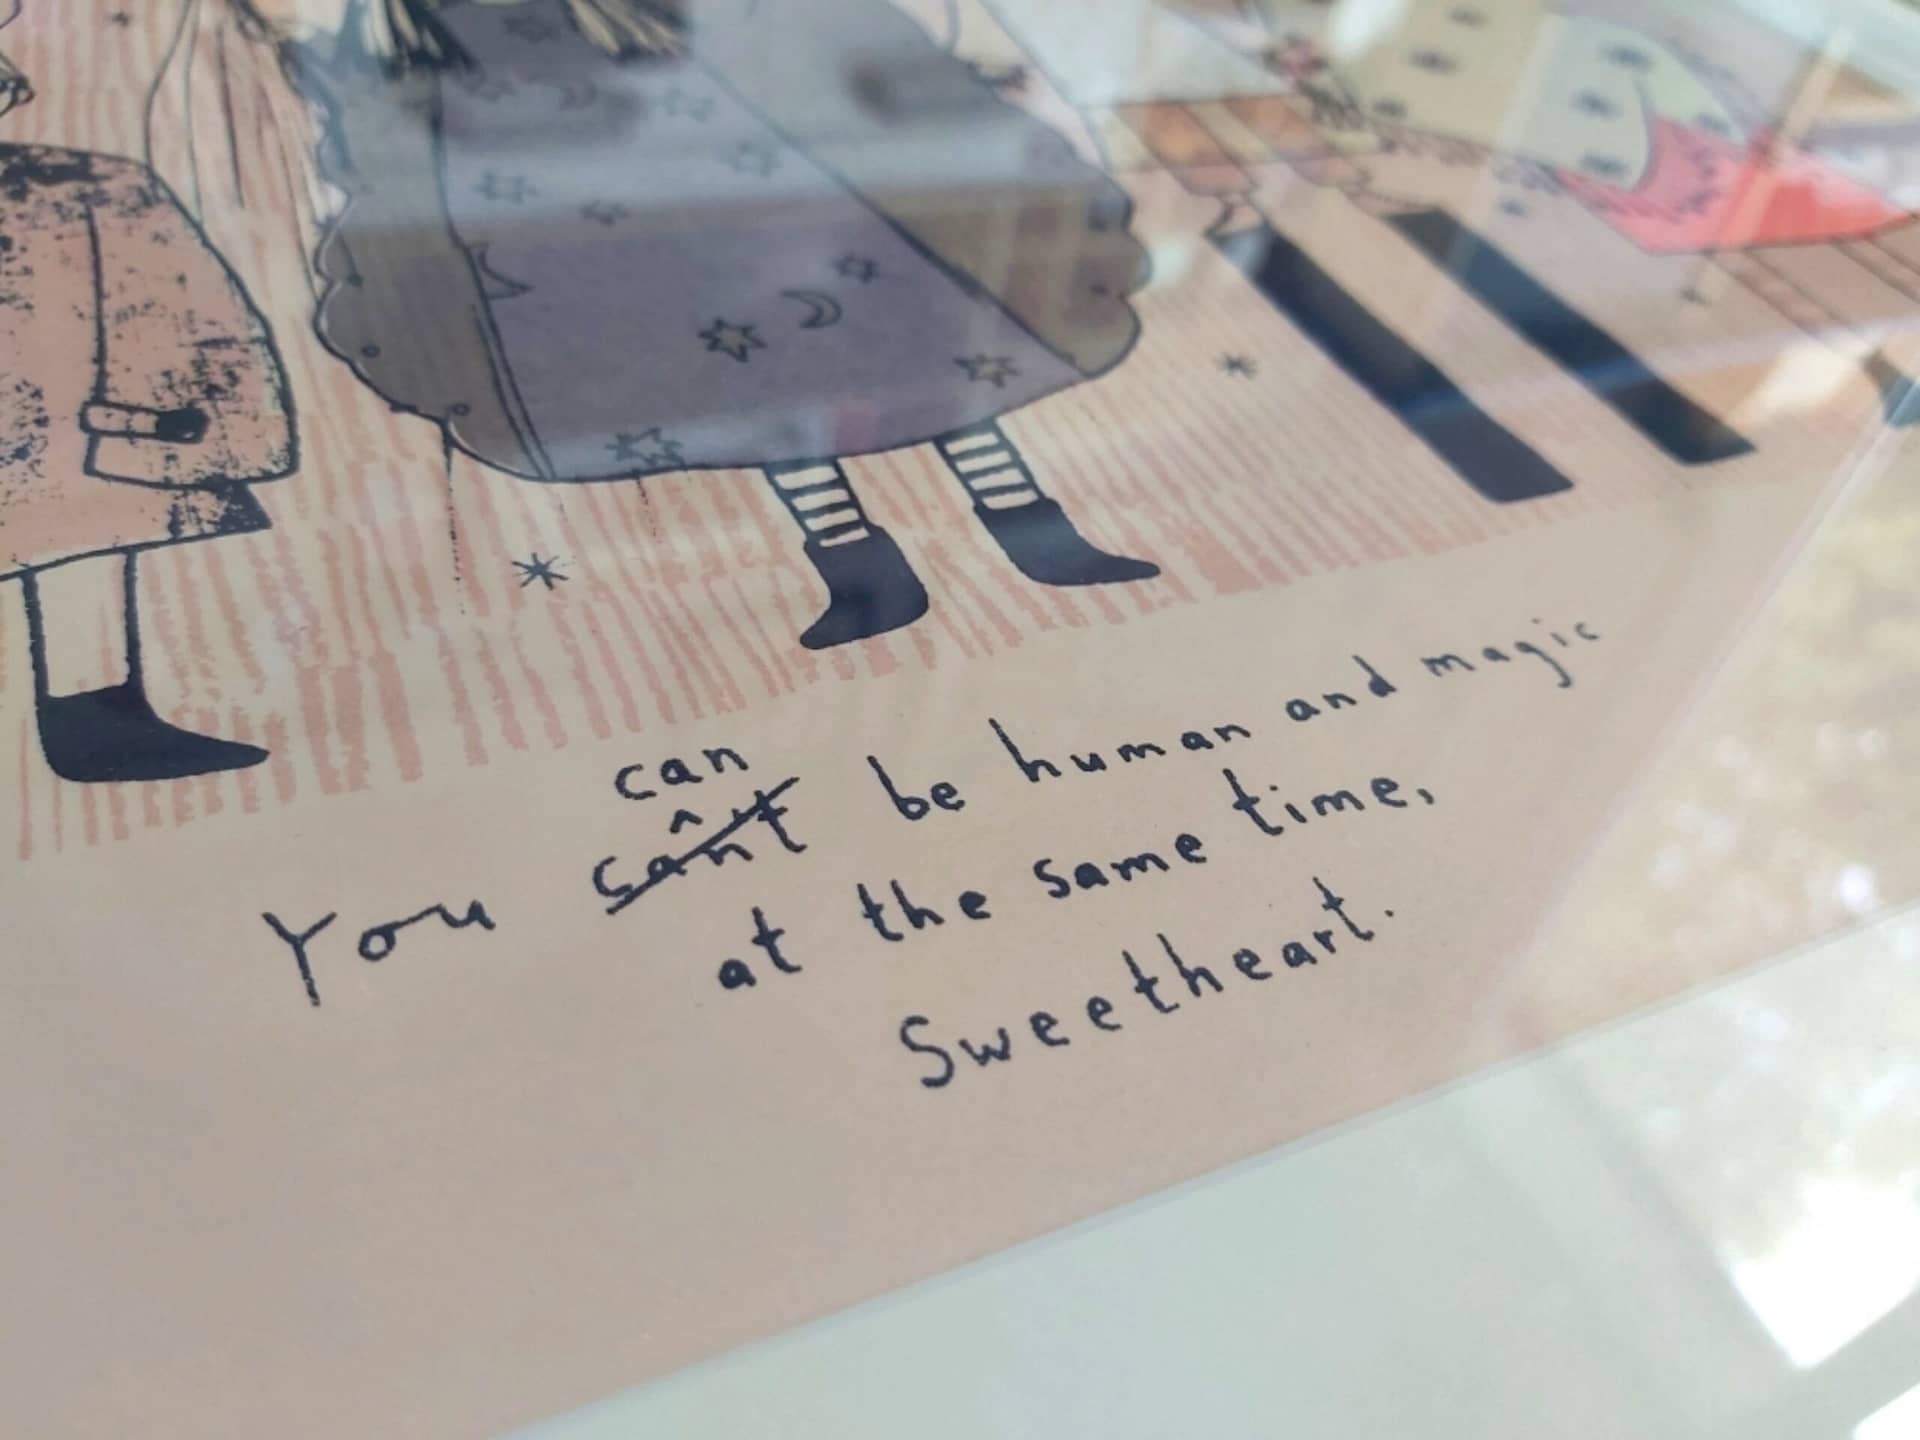 can
You can't be human and magic
at the same time,
Sweetheart.